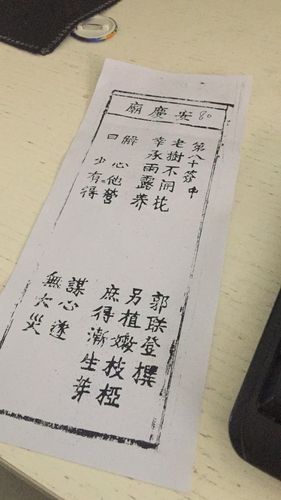 80
安慶廟
第八十簽中 郭联登撰
老樹不開花 另植嫩枝椏
幸承雨露養 庶得漸生芽
解 心他營 謀心遂
曰 少有得 無大災